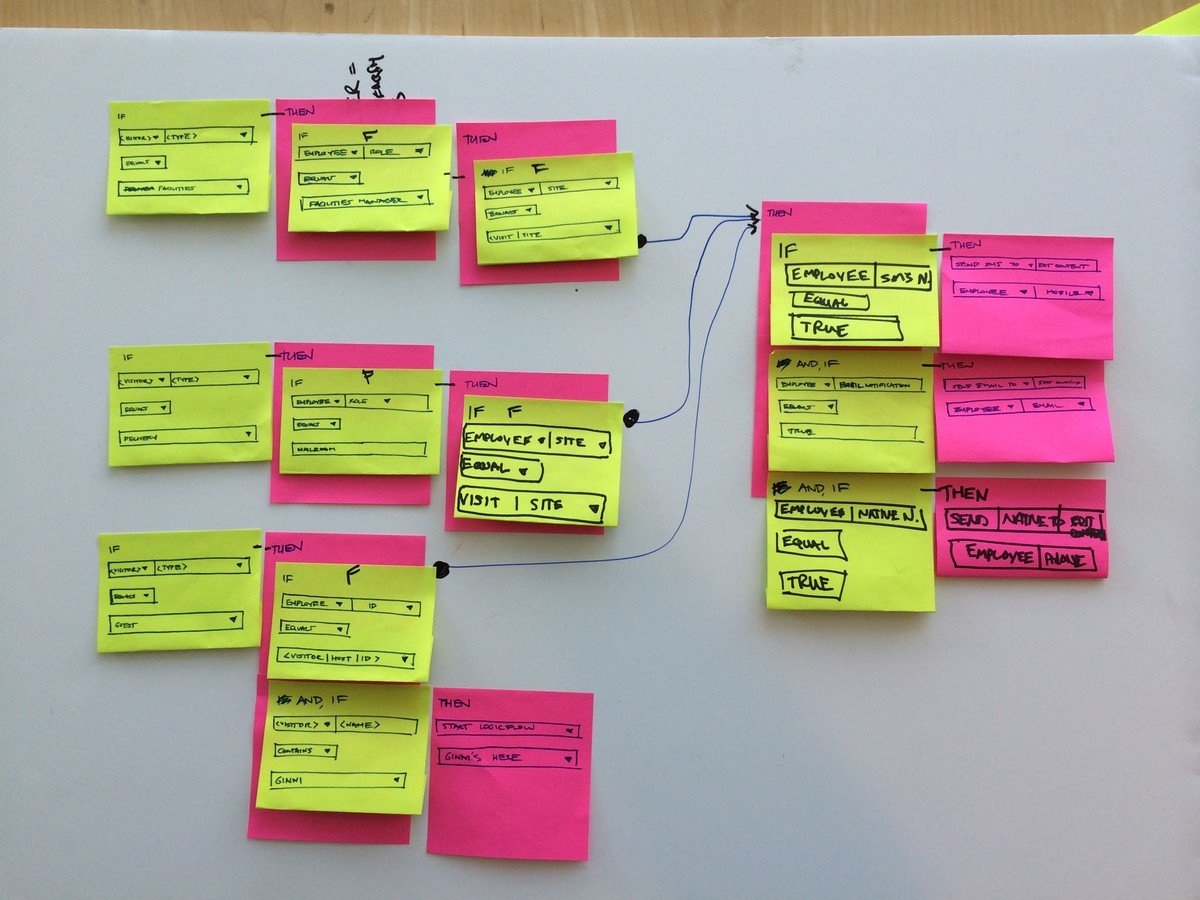 IF
<VISITOR> <TYPE>
EQUALS
FACILITIES
THEN
IF F
EMPLOYEE ROLE
EQUALS
FACILITIES MANAGER
THEN
IF F
EMPLOYEE SITE
EQUALS
<VISIT | SITE
IF
<VISITOR> <TYPE>
EQUALS
DELIVERY
THEN
IF
EMPLOYEE ROLE
EQUALS
MAILROOM
THEN
IF F
EMPLOYEE SITE
EQUAL
VISIT | SITE
IF
<VISITOR> <TYPE>
EQUALS
GUEST
THEN
IF F
EMPLOYEE ID
EQUALS
<VISITOR | HOST | ID>
AND, IF
<VISITOR> <NAME>
CONTAINS
GINNI
THEN
START LOGICFLOW
GINNI'S HERE
THEN
IF
EMPLOYEE SMS N.
EQUAL
TRUE
THEN
SEND SMS TO EDIT CONTENT
EMPLOYEE MOBILE
AND, IF
EMPLOYEE EMAIL NOTIFICATION
EQUALS
TRUE
THEN
SEND EMAIL TO EDIT CONTENT
EMPLOYEE EMAIL
AND, IF
EMPLOYEE NATIVE N.
EQUAL
TRUE
THEN
SEND NATIVE TO EDIT
EMPLOYEE PHONE